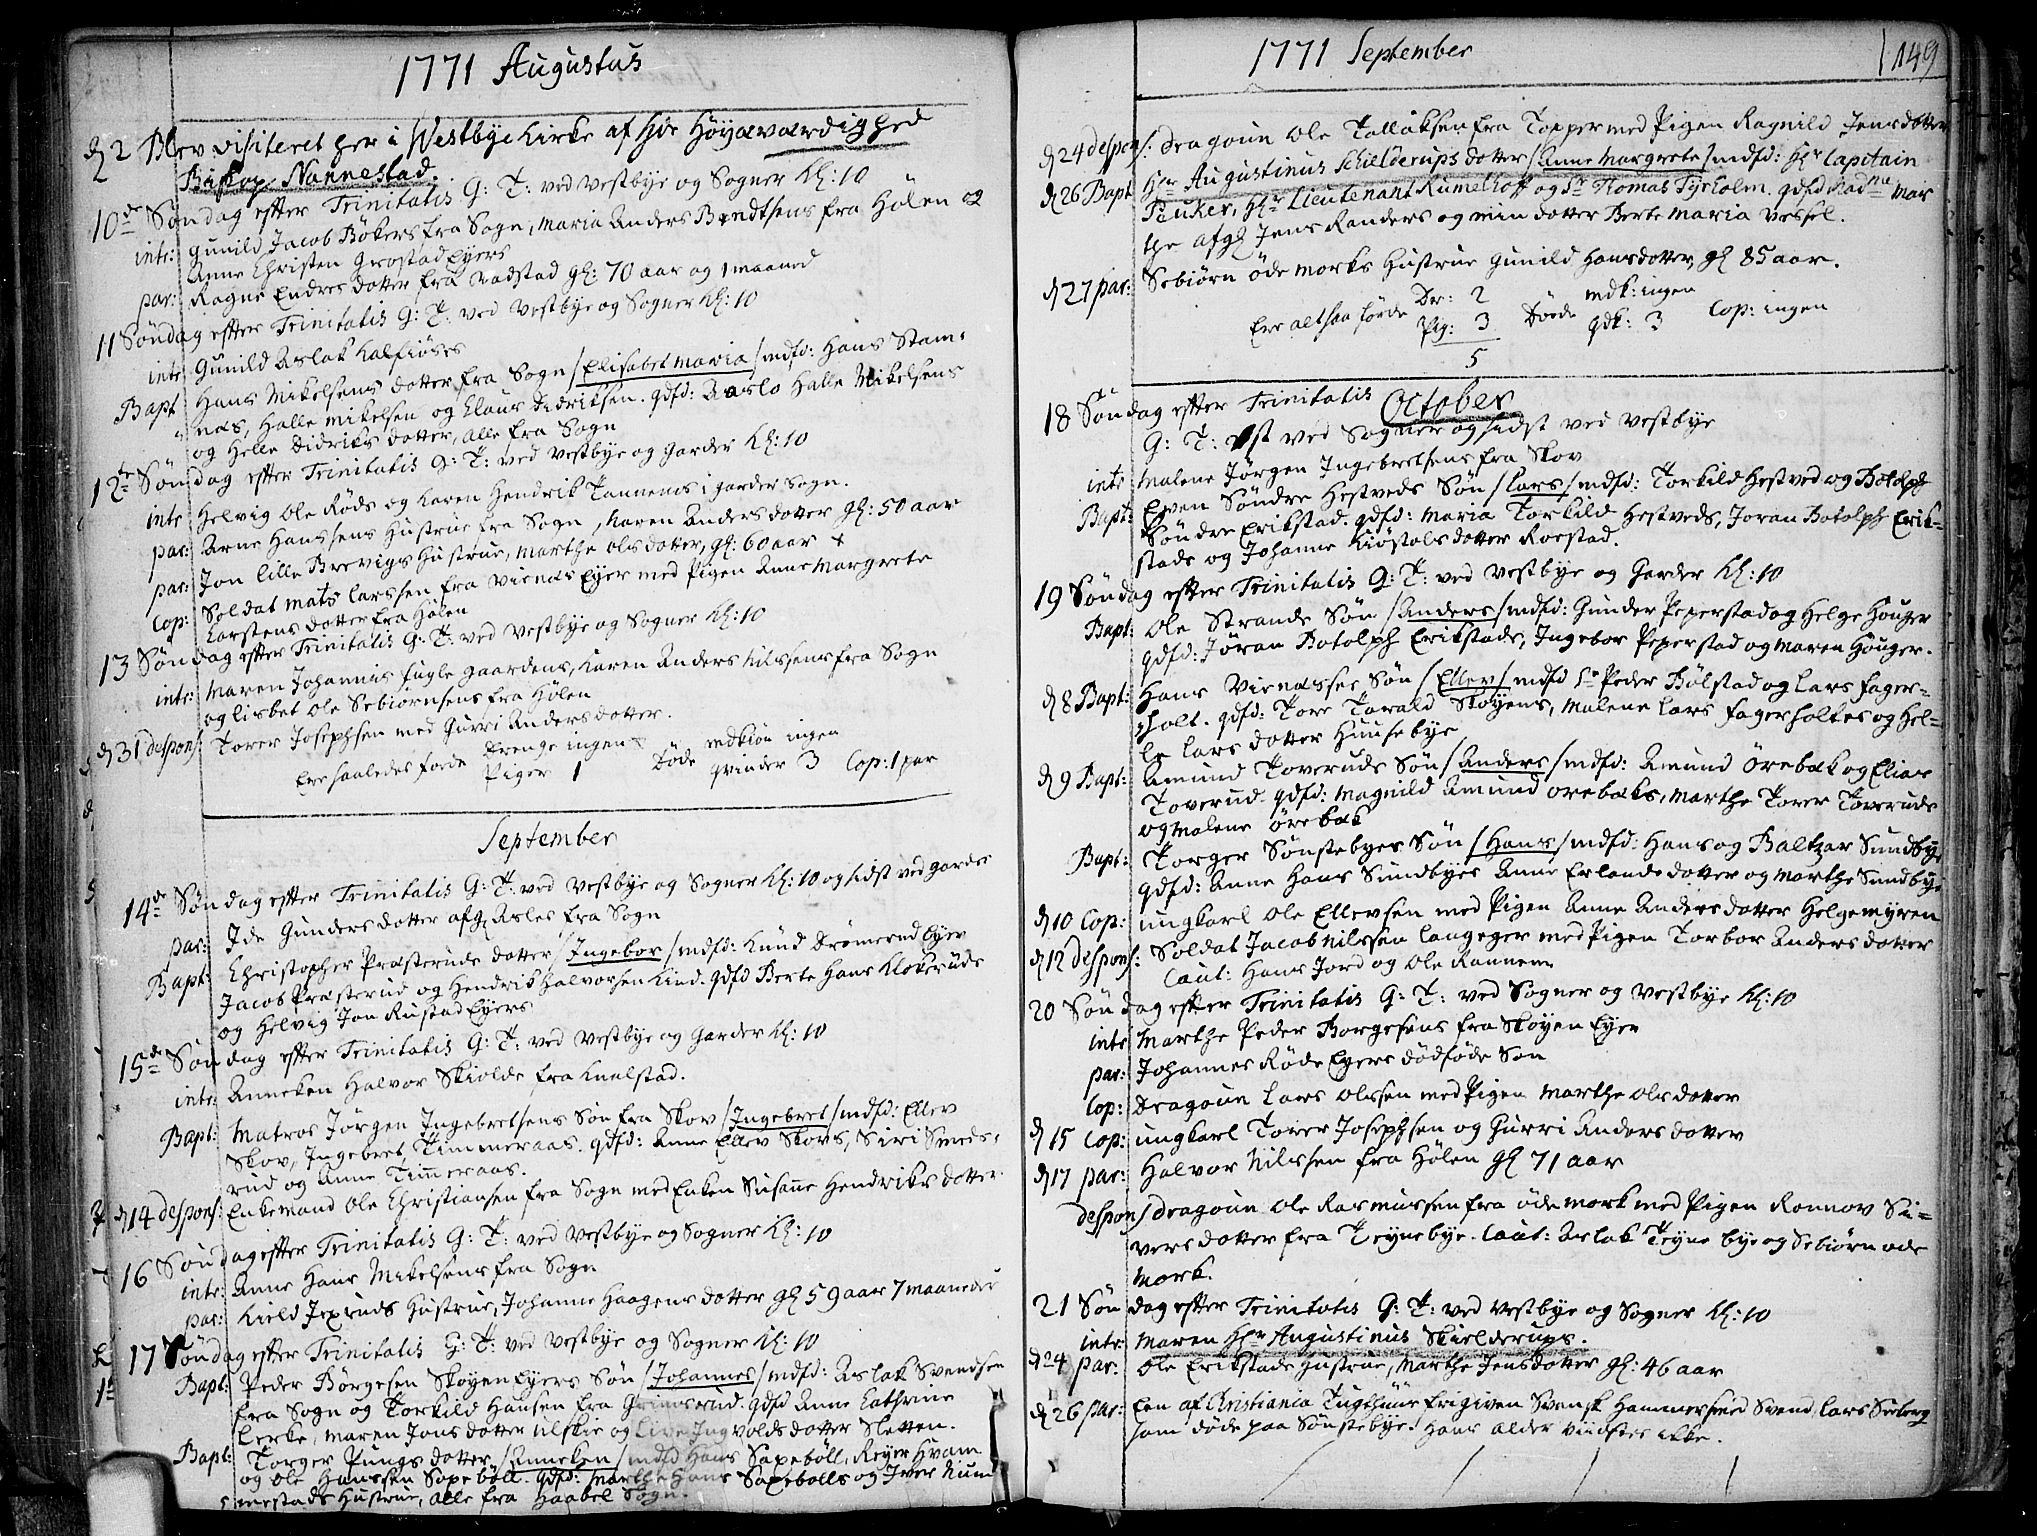 1771 Augustus
d 2 Blev visiteret her i Westbye Kirke af Hs Høyærværdighed
Biskop Nannestad.
10de Søndag efter Trinitatis G: T: ved Vestbye og Sogner Kl: 10
intr: Gunild Jacob Bøkers fra Sogn, Maria Anders Berndtsens fra Hølen og
Anne Christen Grostad Eyers
par: Ragne Endres dotter fra Vadstad gl: 70 aar og 1 maaned
11 Søndag efter Trinitatis G: T: ved Vestbye og Sogner Kl: 10
intr Gunild Aslak Kalfiøses
Bapt Hans Mikelsens dotter fra Sogn /Elisabet Maria/ mdfd: Hans Stam-
næs, Halle Mikelsen og Claus Didriksen. qdfd: Aaslo Halle Mikelsens
og Helle Didriks dotter, alle fra Sogn
12te Søndag efter Trinitatis G: T: ved Vestbye og Garder Kl: 10
intr Helvig Ole Røds og Karen Hendrik Tannems i Garder Sogn.
par: Arne Hanssens Hustrue fra Sogn, Karen Anders dotter gl: 50 aar
par: Jon lille Brevigs Hustrue, Marthe Ols dotter, gl: 60 aar
Cop: Soldat Mats Larssen fra Viernæs Eyer med Pigen Anne Margrete
Carstens dotter fra Hølen
13 Søndag efter Trinitatis G: T: ved Vestbye og Sogner Kl: 10
intr: Maren Johannis Fugle gaardens, Karen Anders Nilssens fra Sogn
og Lisbet Ole Sebiørnsens fra Hølen
d 31 despons: Torer Josephsen med Gurri Anders dotter.
Ere saaledes fødde Drenge ingen Døde mdkiøn ingen
Piger 1 qvinder 3 Cop: 1 par
September
14de Søndag efter Trinitatis G: T: ved Vestbye og Sogner Kl: 10 og sidst ved Garder
par: Ide Gunders dotter afg. Asles fra Sogn
Bapt: Christopher Præsterude dotter /Ingebor/ mdfd: Knud Drømerud Eyer
Jacob Præsterud og Hendrik Halvorsen Kind. qdfd Berte Hans Klokeruds
og Helvig Jon Rustad Eyers
15de Søndag efter Trinitatis G: T: ved Vestbye og Garder Kl: 10
intr: Anneken Halvor Skiolde fra Knelstad.
Bapt: Matros Jørgen Ingebretsens Søn fra Skov /Ingebret/ mdfd: Ellev
Skov, Ingebret Timmeraas. qdfd: Anne Ellev Skovs, Siri Smeds-
rud og Anne Timmeraas.
d 14 despons: Enkemand Ole Christiansen fra Sogn med Enken Susanne Hendriks dotter
16 Søndag efter Trinitatis G: T: ved Vestbye og Sogner Kl: 10
intr: Anne Hans Mikelsens fra Sogn
par: Kield Jexruds Hustrue, Johanne Haagens dotter gl 59 aar 7 maaneder
17 Søndag efter Trinitatis G: T: ved Vestbye og Sogner Kl: 10
Bapt: Peder Børgesen Skoyen Eyers Søn /Johannes/ mdfd: Aslak Svendsen
fra Sogn og Torkild Hansen fra Grimsrud. qdfd Anne Cathrine
Lerke, Maren Jons dotter og Live Ingvolds dotter Sletten.
Bapt: Torger Pungs dotter /Anneken/ mdfd Hans Saxebøll, Reyer Hvam
og Ole Hanssen Saxebøll. qdfd: Marthe Hans Saxebølls og Iver Num
mestads Hustrue, alle fra Haabel Sogn.
1771 September
149
d 24 despons: Dragoun Ole Tallaksen fra Topper med Pigen Ragnild Jens dotter
d 26 Bapt Hr Augustinus Schielderups dotter /Anne Margrete/ mdfd: Hr Capitain
Peuker, Hr Lieutenant Rumelhoff og Sr Thomas Tyrholm. qdfd Madme Mar
the afgl Jens Randers og min dotter Berte Maria Vessel.
d 27 par: Sebiørn Ødemorks Hustrue Gunild Hansdotter, gl 85 aar.
Ere altsaa fødde Dr: 2 Døde mdk: ingen Cop: ingen
Pig: 3 qdk: 3
5
October
18 Søndag efter Trinitatis
G: T: 1st ved Sogner og sidst ved Vestbye
intr Malene Jørgen Ingebretsens fra Skov
Bapt: Even Søndre Hestveds Søn /Lars/ mdfd: Torkild Hestved og Botolph
Søndre Erikstad. qdfd: Maria Torkild Hestveds, Joran Botolph Erik-
stads og Johanne Kiøstols dotter Roestad.
19 Søndag efter Trinitatis G: T: ved Vestbye og Garder Kl: 10
Bapt: Ole Strands Søn /Anders/ mdfd: Gunder Peperstad og Helge Houger
qdfd: Jøran Botolph Erikstads, Ingebor Peperstad og Maren Houger.
d 8 Bapt: Hans Viernæsses Søn /Ellev/ mdfd Sr Peder Bølstad og Lars Fager-
holt. qdfd: Tore Tarald Skøyens, Malene Lars Fagerholtes og Hel-
le Lars dotter Huusebye
d 9 Bapt: Amund Toveruds Søn /Anders/ mdfd: Amund Ørebæk og Elias
Toverud. qdfd: Magnild Amund Orebæks, Marthe Torer Toveruds
og Malene Ørebæk
Bapt: Torger Sønstebyes Søn /Hans/ mdfd: Hans og Baltzar Sundbye
qdfd: Anne Hans Sundbyes Anne Erlands dotter og Marthe Sundbye
d 10 Cop: ungkarl Ole Ellevsen med Pigen Anne Anders dotter Helgemyren
d 12 despons: Soldat Jacob Nilssen Langeger med Pigen Torbor Anders dotter
Caut: Hans Jord og Ole Rannem
20 Søndag efter Trinitatis G: T: ved Sogner og Vestbye Kl: 10
intr Marthe Peder Borgesens fra Skoyen Eyer
par: Johannes Røds Eyers dødføde Søn
Cop: Dragoun Lars Olssen med Pigen Marthe Ols dotter
d 15 Cop: ungkarl Torer Josephsen og Gurri Anders dotter
d 17 par: Halvor Nilssen fra Hølen gl 71 aar
despons/ dragoun Ole Rasmussen fra Ødemork med Pigen Ronnov Si-
vers dotter fra Teynebye. Caut: Aslak Teyne bye og Sebiørn Øde
mork.
21 Søndag efter Trinitatis G: T: ved Vestbye og Sogner Kl: 10
intr Maren Hr Augustinus Skielderups.
d 24 par: Ole Erikstads Hustrue, Marthe Jensdotter gl: 46 aar
d 26 par: En af Christiania Tugthuus frigiven Svensk Hammersmed Svend Lars Seeberg
som døde paa Sønstebye. Hans alder vidstes ikke.